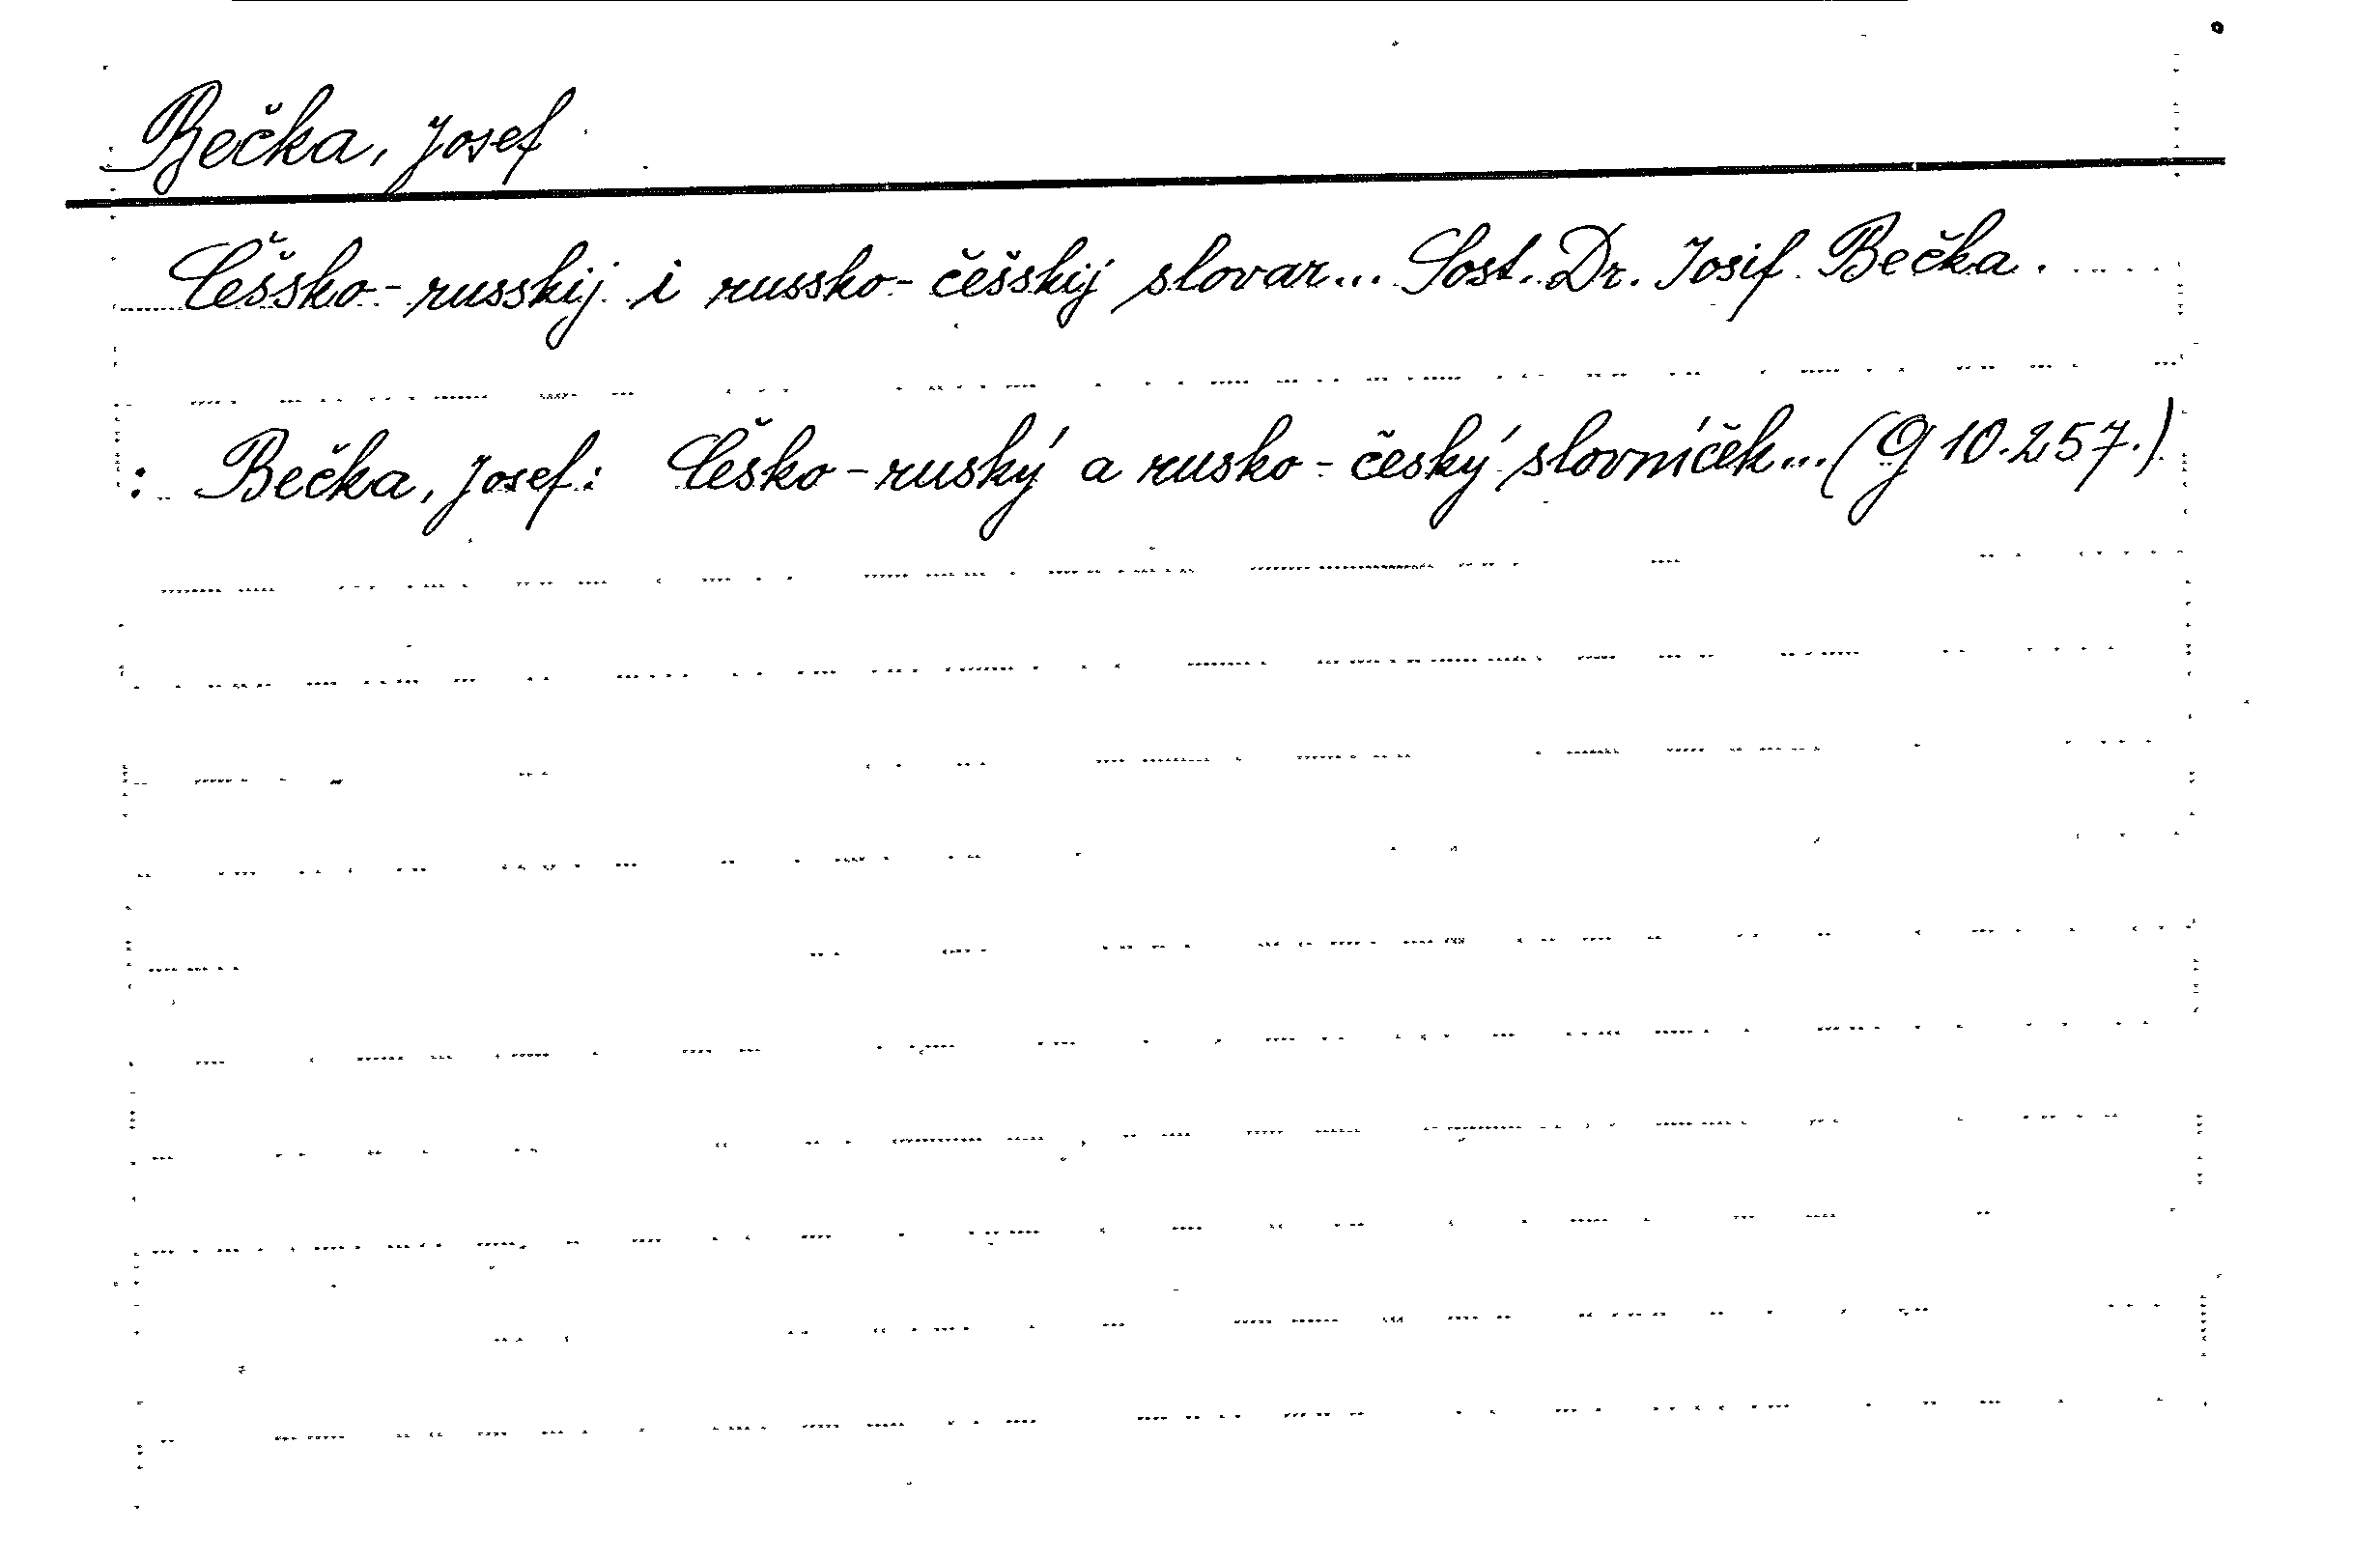 Bečka, Josef
Češsko-russkij i russko-češskij slovar... Sost. Dr. Josif Bečka.
: Bečka, Josef: Česko-ruský a rusko-český slovníček... (G 10.257.)